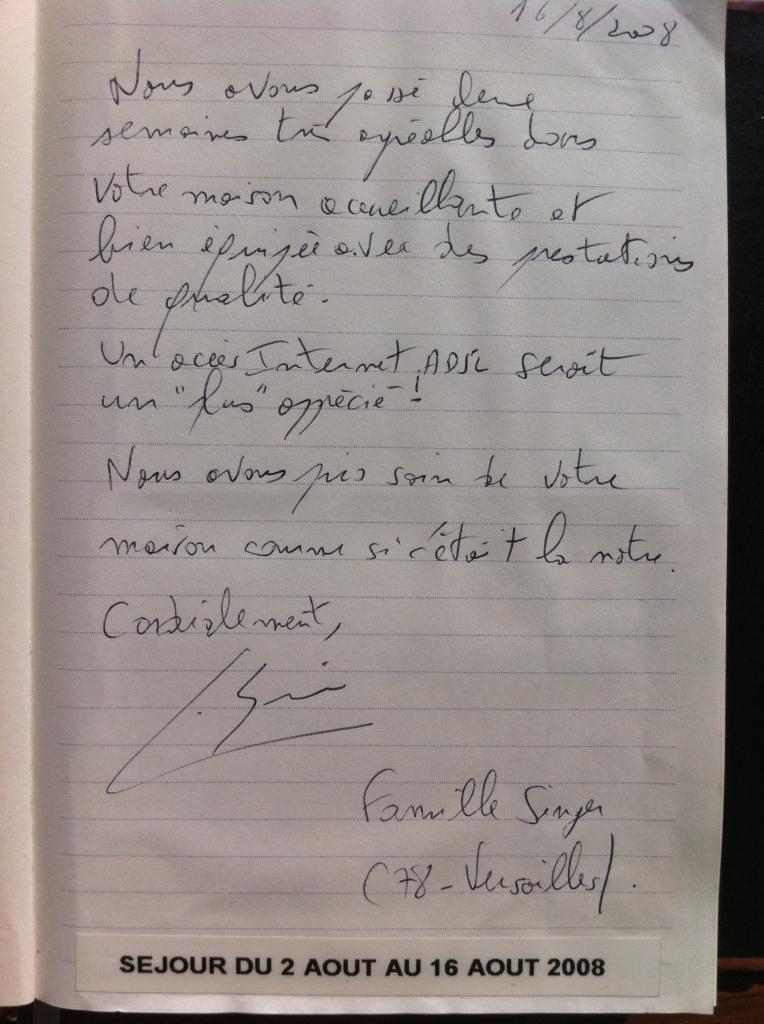 16/8/2008
Nous avons passé deux
semaines très agréables dans
votre maison accueillante et
bien équipée avec des prestations
de qualité.
Un accès Internet ADSL serait
un "plus" apprécié !
Nous avons pris soin de votre
maison comme si c'était la notre.
Cordialement,
Famille Singer
(78 - Versailles).
SEJOUR DU 2 AOUT AU 16 AOUT 2008